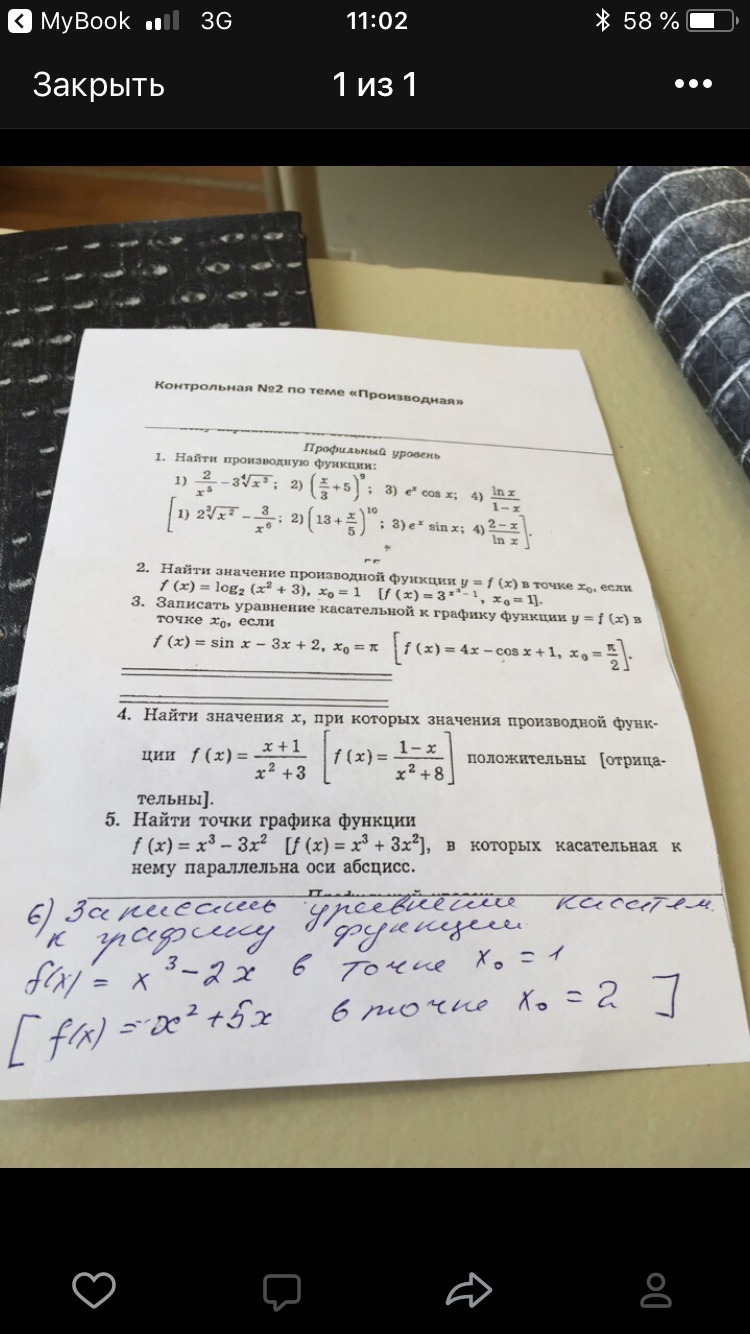 MyBook 3G 11:02 58 %
Закрыть 1 из 1
Контрольная №2 по теме «Производная»
Профильный уровень
1. Найти производную функции:
1) 2/x⁵ − 3∜x³; 2) (x/3 + 5)⁹; 3) eˣ cos x; 4) ln x/(1 − x)
[1) 2∛x² − 3/x⁶; 2) (13 + x/5)¹⁰; 3) eˣ sin x; 4) (2 − x)/ln x].
2. Найти значение производной функции y = f (x) в точке x₀, если
f (x) = log₂ (x² + 3), x₀ = 1 [f (x) = 3^(x³ − 1), x₀ = 1].
3. Записать уравнение касательной к графику функции y = f (x) в
точке x₀, если
f (x) = sin x − 3x + 2, x₀ = π [f (x) = 4x − cos x + 1, x₀ = π/2].
4. Найти значения x, при которых значения производной функ-
ции f (x) = (x + 1)/(x² + 3) [f (x) = (1 − x)/(x² + 8)] положительны [отрица-
тельны].
5. Найти точки графика функции
f (x) = x³ − 3x² [f (x) = x³ + 3x²], в которых касательная к
нему параллельна оси абсцисс.
6) Записать уравнение касател.
к графику функции
f(x) = x³ − 2x в точке x₀ = 1
[f(x) = x² + 5x в точке x₀ = 2]